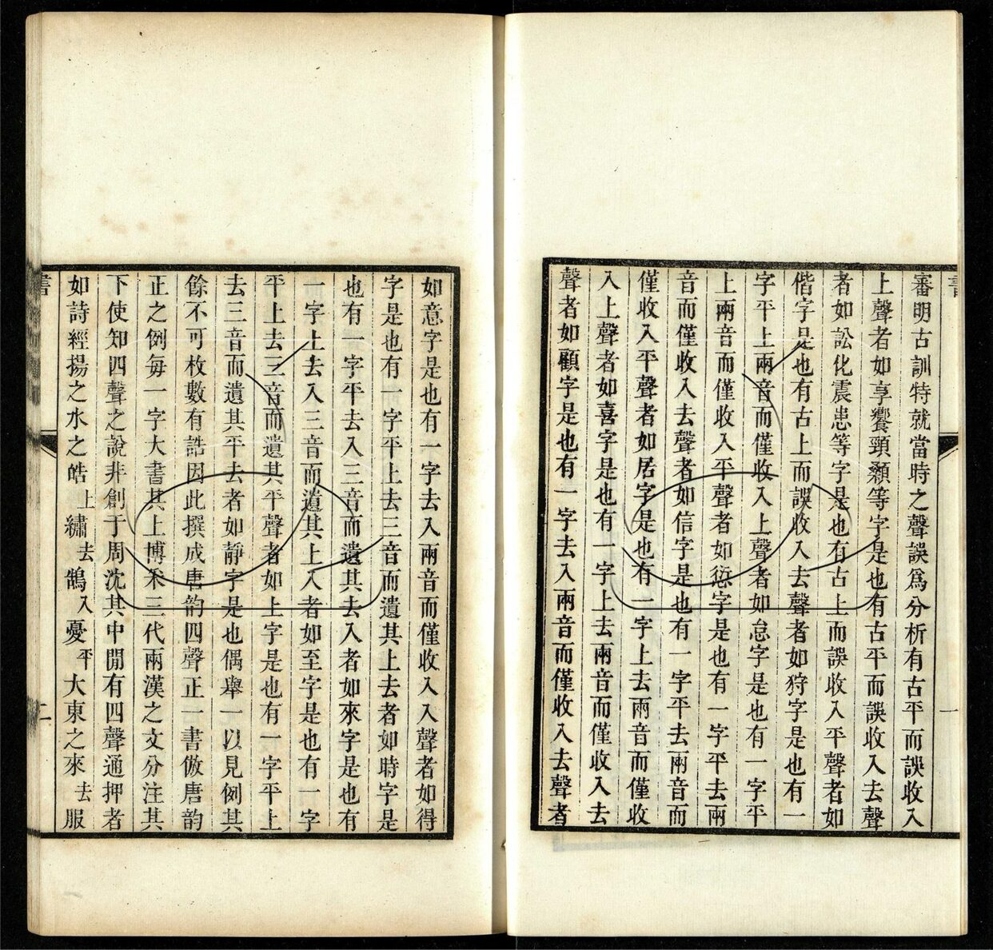 審明古訓特就當時之聲誤爲分析有古平而誤收入
上聲者如享饗頸顙等字是也有古平而誤收入去聲
者如訟化震患等字是也有古上而誤收入平聲者如
偕字是也有古上而誤收入去聲者如狩字是也有一
字平上兩音而僅收入上聲者如怠字是也有一字平
上兩音而僅收入平聲者如愆字是也有一字平去兩
音而僅收入去聲者如信字是也有一字平去兩音而
僅收入平聲者如居字是也有一字上去兩音而僅收
入上聲者如喜字是也有一字上去兩音而僅收入去
聲者如顧字是也有一字去入兩音而僅收入去聲者
如意字是也有一字去入兩音而僅收入入聲者如得
字是也有一字平上去三音而遺其上去者如時字是
也有一字平去入三音而遺其去入者如來字是也有
一字上去入三音而遺其上入者如至字是也有一字
平上去三音而遺其平聲者如上字是也有一字平上
去三音而遺其平去者如靜字是也偶舉一以見例其
餘不可枚數有誥因此撰成唐韵四聲正一書倣唐韵
正之例每一字大書其上博釆三代兩漢之文分注其
下使知四聲之說非創于周沈其中閒有四聲通押者
如詩經揚之水之皓上繡去鵠入憂平大東之來去服